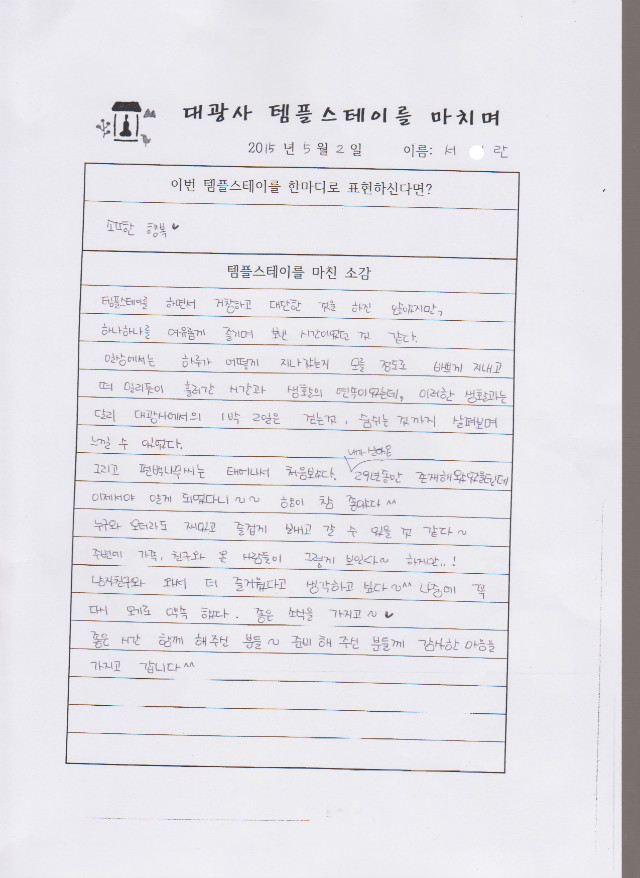 대광사 템플스테이를 마치며
2015 년 5 월 2 일 이름: 서 란
이번 템플스테이를 한마디로 표현하신다면?
소소한 행복♥
템플스테이를 마친 소감
템플스테이를 하면서 거창하고 대단한 것을 하진 않았지만,
하나하나를 여유롭게 즐기며 보낸 시간이었던 것 같다.
일상에서는 하루가 어떻게 지나갔는지 모를 정도로 바쁘게 지내고
떠 밀리듯이 흘러간 시간과 생활의 연속이었는데, 이러한 생활과는
달리 대광사에서의 1박 2일은 걷는것, 숨쉬는 것까지 살펴보며
느낄 수 있었다.
내가 살아온
그리고 편백나무씨는 태어나서 처음보았다. 29년동안 존재해왔었을텐데
이제서야 알게 되었다니~~ 향이 참 좋았다^^
누구와 오더라도 재밌고 즐겁게 보내고 갈 수 있을 것 같다~
주변에 가족, 친구와 온 사람들이 그렇게 보인다~ 하지만..!
남자친구와 와서 더 즐거웠다고 생각하고 싶다~^^ 나중에 꼭
다시 오기로 약속 했다. 좋은 소식을 가지고~♥
좋은 시간 함께 해주신 분들~ 준비해 주신 분들께 감사한 마음을
가지고 갑니다^^